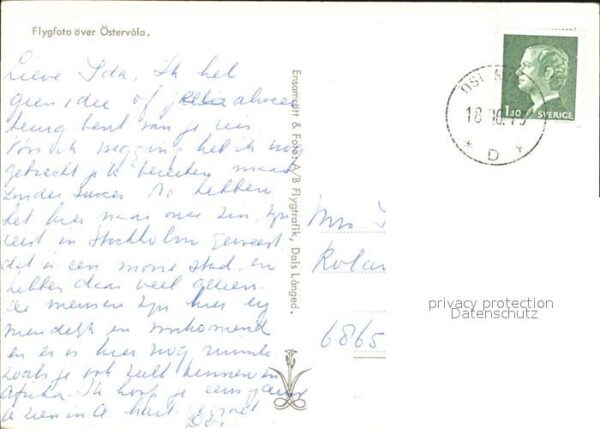 Flygfoto över Östervåla.
Lieve Ida, Ik heb
geen idee of jullie alweer
terug bent van je reis
Voor ik wegging heb ik nog
getracht je te bereiken maar
zonder succes We hebben
het hier naar onze zin, zijn
eerst in Stockholm geweest
dat is een mooie stad, en
hebben daar veel gezien.
De mensen zijn hier
vriendelijk en
en er is hier nog ruimte
zoals je ook zult kennen in
Afrika. Ik hoop je eens gauw
te zien in A. hart. groet
Ensamrätt & Foto: A/B Flygtrafik, Dals Långed.
1.30 SVERIGE
18.10.75
* D *
Mrs
Rolan
6865
privacy protection
Datenschutz